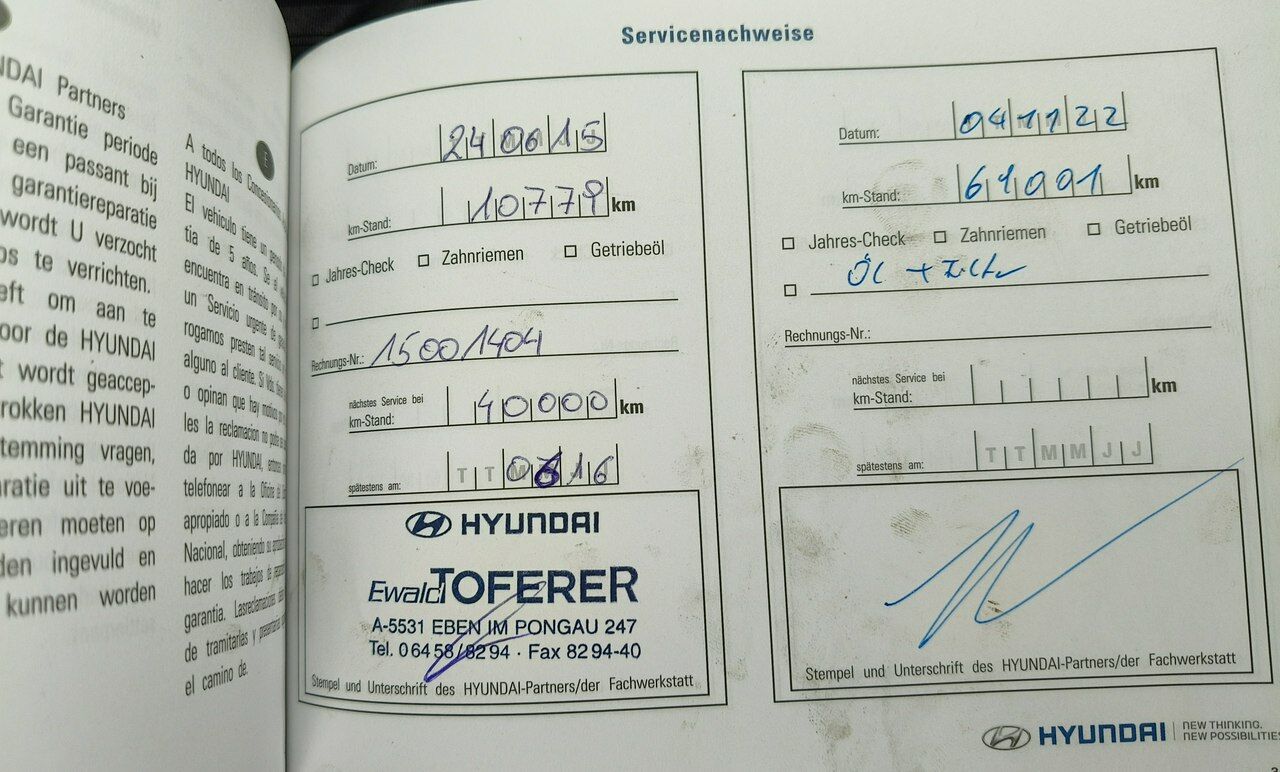 NDAI Partners
Garantie periode
een passant bij
garantiereparatie
wordt U verzocht
os te verrichten.
eft om aan te
oor de HYUNDAI
t wordt geaccep-
rokken HYUNDAI
temming vragen,
ratie uit te voe-
eren moeten op
den ingevuld en
kunnen worden
E
A todos los
HYUNDAI
El vehiculo tiene un
tia de 5 años. Se el
encuentra en tránsito por
un Servicio urgente de
rogamos presten tal
alguno al cliente. Si
o opinan que hay
les la reclamacion no
da por HYUNDAI,
telefonear a la Oficina
apropiado o a la Compañia
Nacional, obteniendo su
hacer los trabajos de
garantia. Lasreclamaciones
de tramitarlas y
el camino de.
Servicenachweise
Datum: 24 06 15
km-Stand: 10779 km
Jahres-Check Zahnriemen Getriebeöl
Rechnungs-Nr.: 15001404
nächstes Service bei
km-Stand: 40000 km
spätestens am: T T 06 16
HYUNDAI
Ewald TOFERER
A-5531 EBEN IM PONGAU 247
Tel. 0 64 58/82 94 · Fax 82 94-40
Stempel und Unterschrift des HYUNDAI-Partners/der Fachwerkstatt
Datum: 04 11 22
km-Stand: 61001 km
Jahres-Check Zahnriemen Getriebeöl
Öl + Filter
Rechnungs-Nr.:
nächstes Service bei
km-Stand: km
spätestens am: T T M M J J
Stempel und Unterschrift des HYUNDAI-Partners/der Fachwerkstatt
HYUNDAI NEW THINKING.
NEW POSSIBILITIES